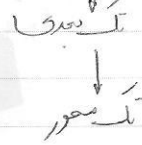 تک بعدی
تک محور